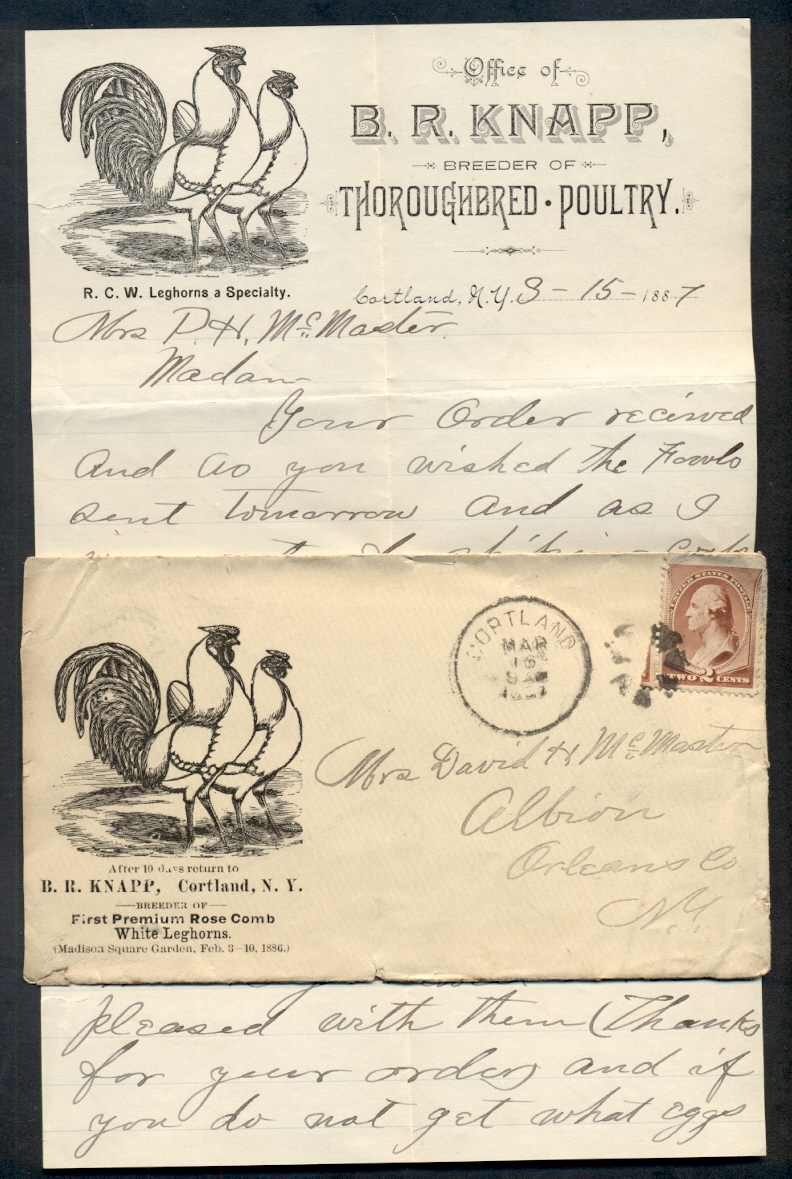 Office of
B. R. KNAPP,
BREEDER OF
THOROUGHBRED • POULTRY.
R. C. W. Leghorns a Specialty.
Cortland, N.Y. 3-15-1887
Mrs D. H. McMaster.
Madam
Your Order recieved
And as you wished the Fowls
sent tomorrow And as I
CORTLAND
MAR
16
9 AM
1887
UNITED STATES POSTAGE
TWO 2 CENTS
Mrs David H McMaster
Albion
Orleans Co
N.Y.
After 10 days return to
B. R. KNAPP, Cortland, N. Y.
BREEDER OF
First Premium Rose Comb
White Leghorns.
(Madison Square Garden, Feb. 3-10, 1886.)
pleased with them (Thanks
for your order) and if
you do not get what eggs